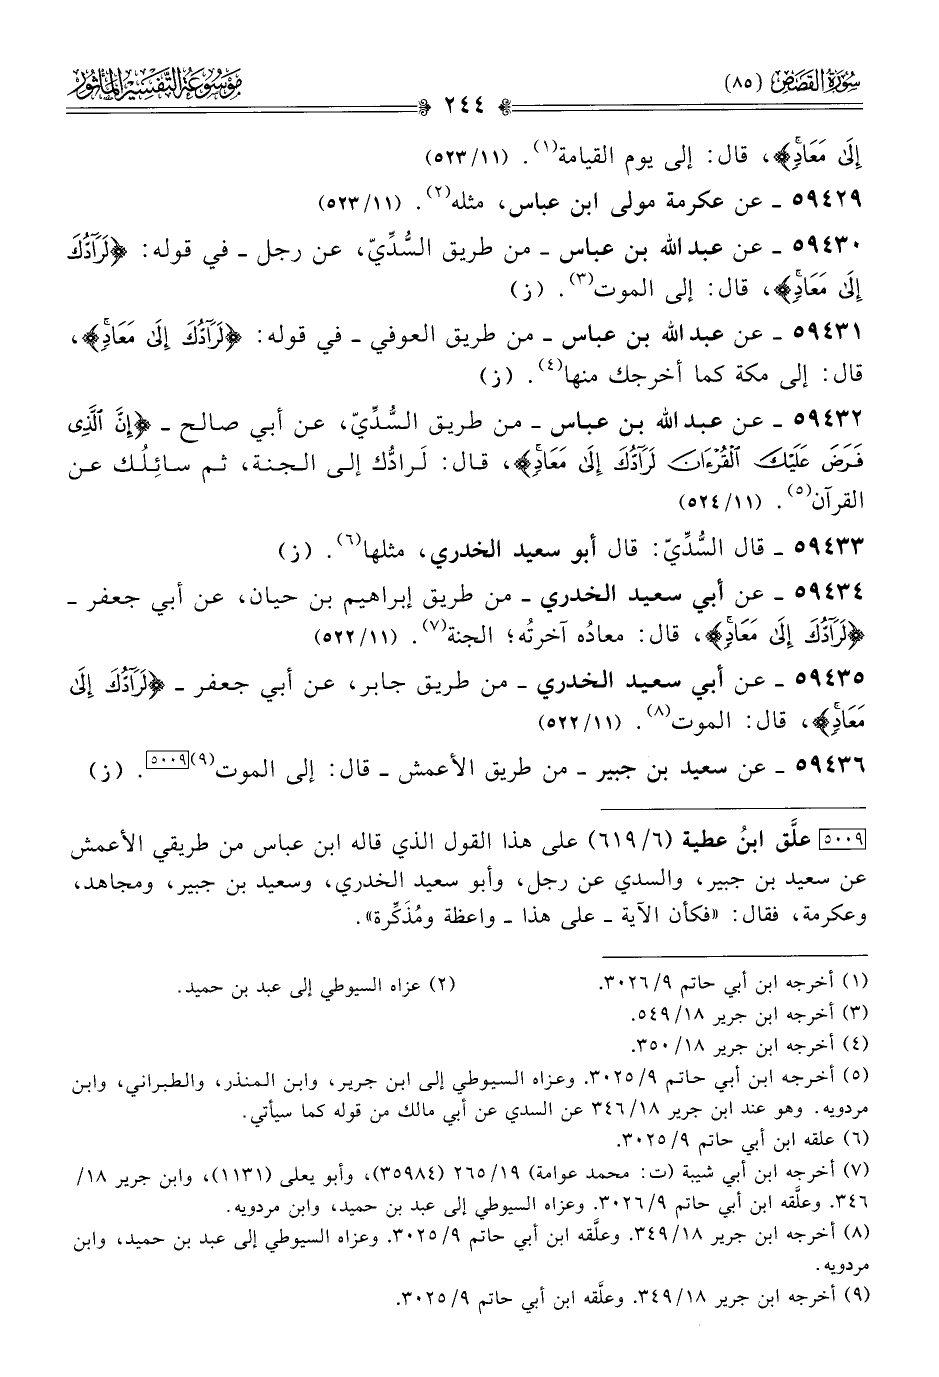 سُورَةُ القَصَصِ (٨٥)
٢٤٤
مَوْسُوعَةُ التَّفْسِيرِ المَأْثُورِ
إِلَىٰ مَعَادٍۚ﴾، قال: إلى يوم القيامة(١). (٥٢٣/١١)
٥٩٤٢٩ ـ عن عكرمة مولى ابن عباس، مثله(٢). (٥٢٣/١١)
٥٩٤٣٠ ـ عن عبد الله بن عباس ـ من طريق السُّدِّيّ، عن رجل ـ في قوله: ﴿لَرَآدُّكَ
إِلَىٰ مَعَادٍۚ﴾، قال: إلى الموت(٣). (ز)
٥٩٤٣١ ـ عن عبد الله بن عباس ـ من طريق العوفي ـ في قوله: ﴿لَرَآدُّكَ إِلَىٰ مَعَادٍۚ﴾،
قال: إلى مكة كما أخرجك منها(٤). (ز)
٥٩٤٣٢ ـ عن عبد الله بن عباس ـ من طريق السُّدِّيّ، عن أبي صالح ـ ﴿إِنَّ ٱلَّذِى
فَرَضَ عَلَيْكَ ٱلْقُرْءَانَ لَرَآدُّكَ إِلَىٰ مَعَادٍۚ﴾، قال: لَرادُّك إلى الجنة، ثم سائِلُك عن
القرآن(٥). (٥٢٤/١١)
٥٩٤٣٣ ـ قال السُّدِّيّ: قال أبو سعيد الخدري، مثلها(٦). (ز)
٥٩٤٣٤ ـ عن أبي سعيد الخدري ـ من طريق إبراهيم بن حيان، عن أبي جعفر ـ
﴿لَرَآدُّكَ إِلَىٰ مَعَادٍۚ﴾، قال: معادُه آخرتُه؛ الجنة(٧). (٥٢٢/١١)
٥٩٤٣٥ ـ عن أبي سعيد الخدري ـ من طريق جابر، عن أبي جعفر ـ ﴿لَرَآدُّكَ إِلَىٰ
مَعَادٍۚ﴾، قال: الموت(٨). (٥٢٢/١١)
٥٩٤٣٦ ـ عن سعيد بن جبير ـ من طريق الأعمش ـ قال: إلى الموت(٩)[٥٠٠٩]. (ز)
[٥٠٠٩] علَّق ابنُ عطية (٦١٩/٦) على هذا القول الذي قاله ابن عباس من طريقي الأعمش
عن سعيد بن جبير، والسدي عن رجل، وأبو سعيد الخدري، وسعيد بن جبير، ومجاهد،
وعكرمة، فقال: «فكأن الآية ـ على هذا ـ واعظة ومُذَكِّرة».
(١) أخرجه ابن أبي حاتم ٣٠٢٦/٩. (٢) عزاه السيوطي إلى عبد بن حميد.
(٣) أخرجه ابن جرير ٥٤٩/١٨.
(٤) أخرجه ابن جرير ٣٥٠/١٨.
(٥) أخرجه ابن أبي حاتم ٣٠٢٥/٩. وعزاه السيوطي إلى ابن جرير، وابن المنذر، والطبراني، وابن
مردويه. وهو عند ابن جرير ٣٤٦/١٨ عن السدي عن أبي مالك من قوله كما سيأتي.
(٦) علقه ابن أبي حاتم ٣٠٢٥/٩.
(٧) أخرجه ابن أبي شيبة (ت: محمد عوامة) ٢٦٥/١٩ (٣٥٩٨٤)، وأبو يعلى (١١٣١)، وابن جرير ١٨/
٣٤٦. وعلَّقه ابن أبي حاتم ٣٠٢٦/٩. وعزاه السيوطي إلى عبد بن حميد، وابن مردويه.
(٨) أخرجه ابن جرير ٣٤٩/١٨. وعلَّقه ابن أبي حاتم ٣٠٢٥/٩. وعزاه السيوطي إلى عبد بن حميد، وابن
مردويه.
(٩) أخرجه ابن جرير ٣٤٩/١٨. وعلَّقه ابن أبي حاتم ٣٠٢٥/٩.